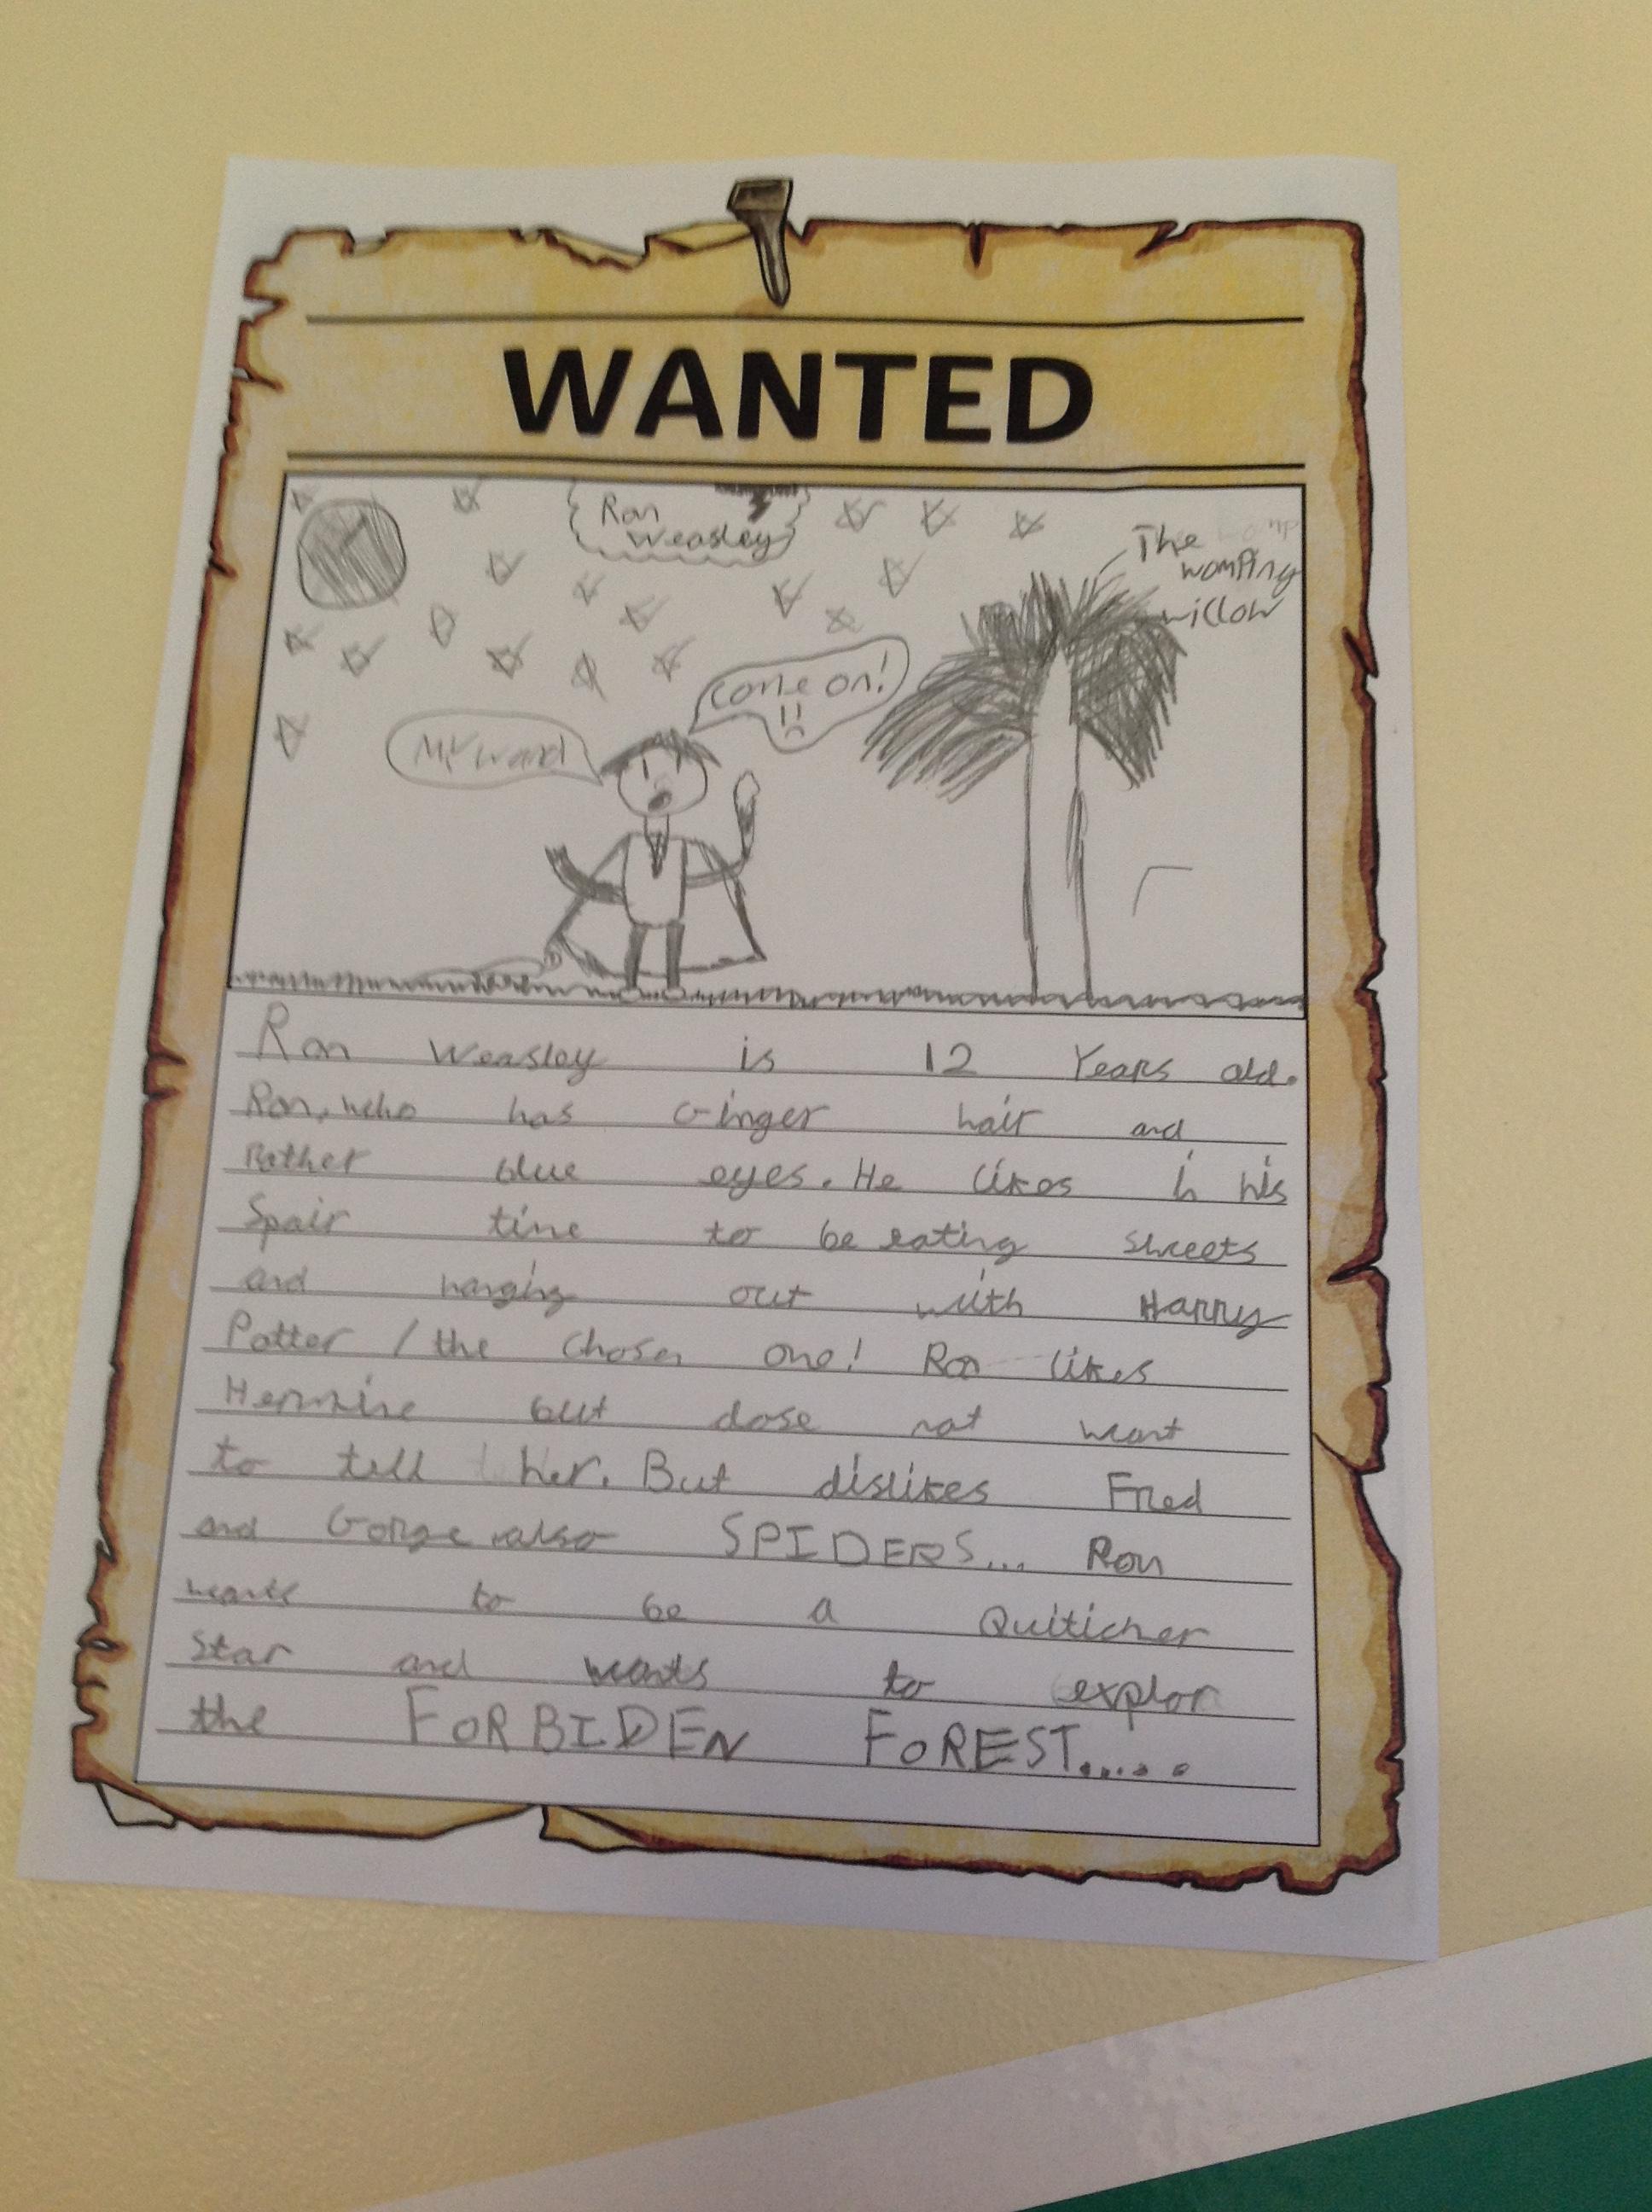 WANTED
Ron
Weasley
The
womping
willow
come on!
My wand
Ron Weasley is 12 Years old.
Ron, who has Ginger hair and
Rather blue eyes. He likes in his
Spair time to be eating sweets
and hanging out with Harry
Potter / the Chosen one! Ron likes
Hermine but dose not want
to tell her. But dislikes Fred
and Gorge also SPIDERS... Ron
wants to be a Quiticher
Star and wants to explor
the FORBIDEN FOREST.....